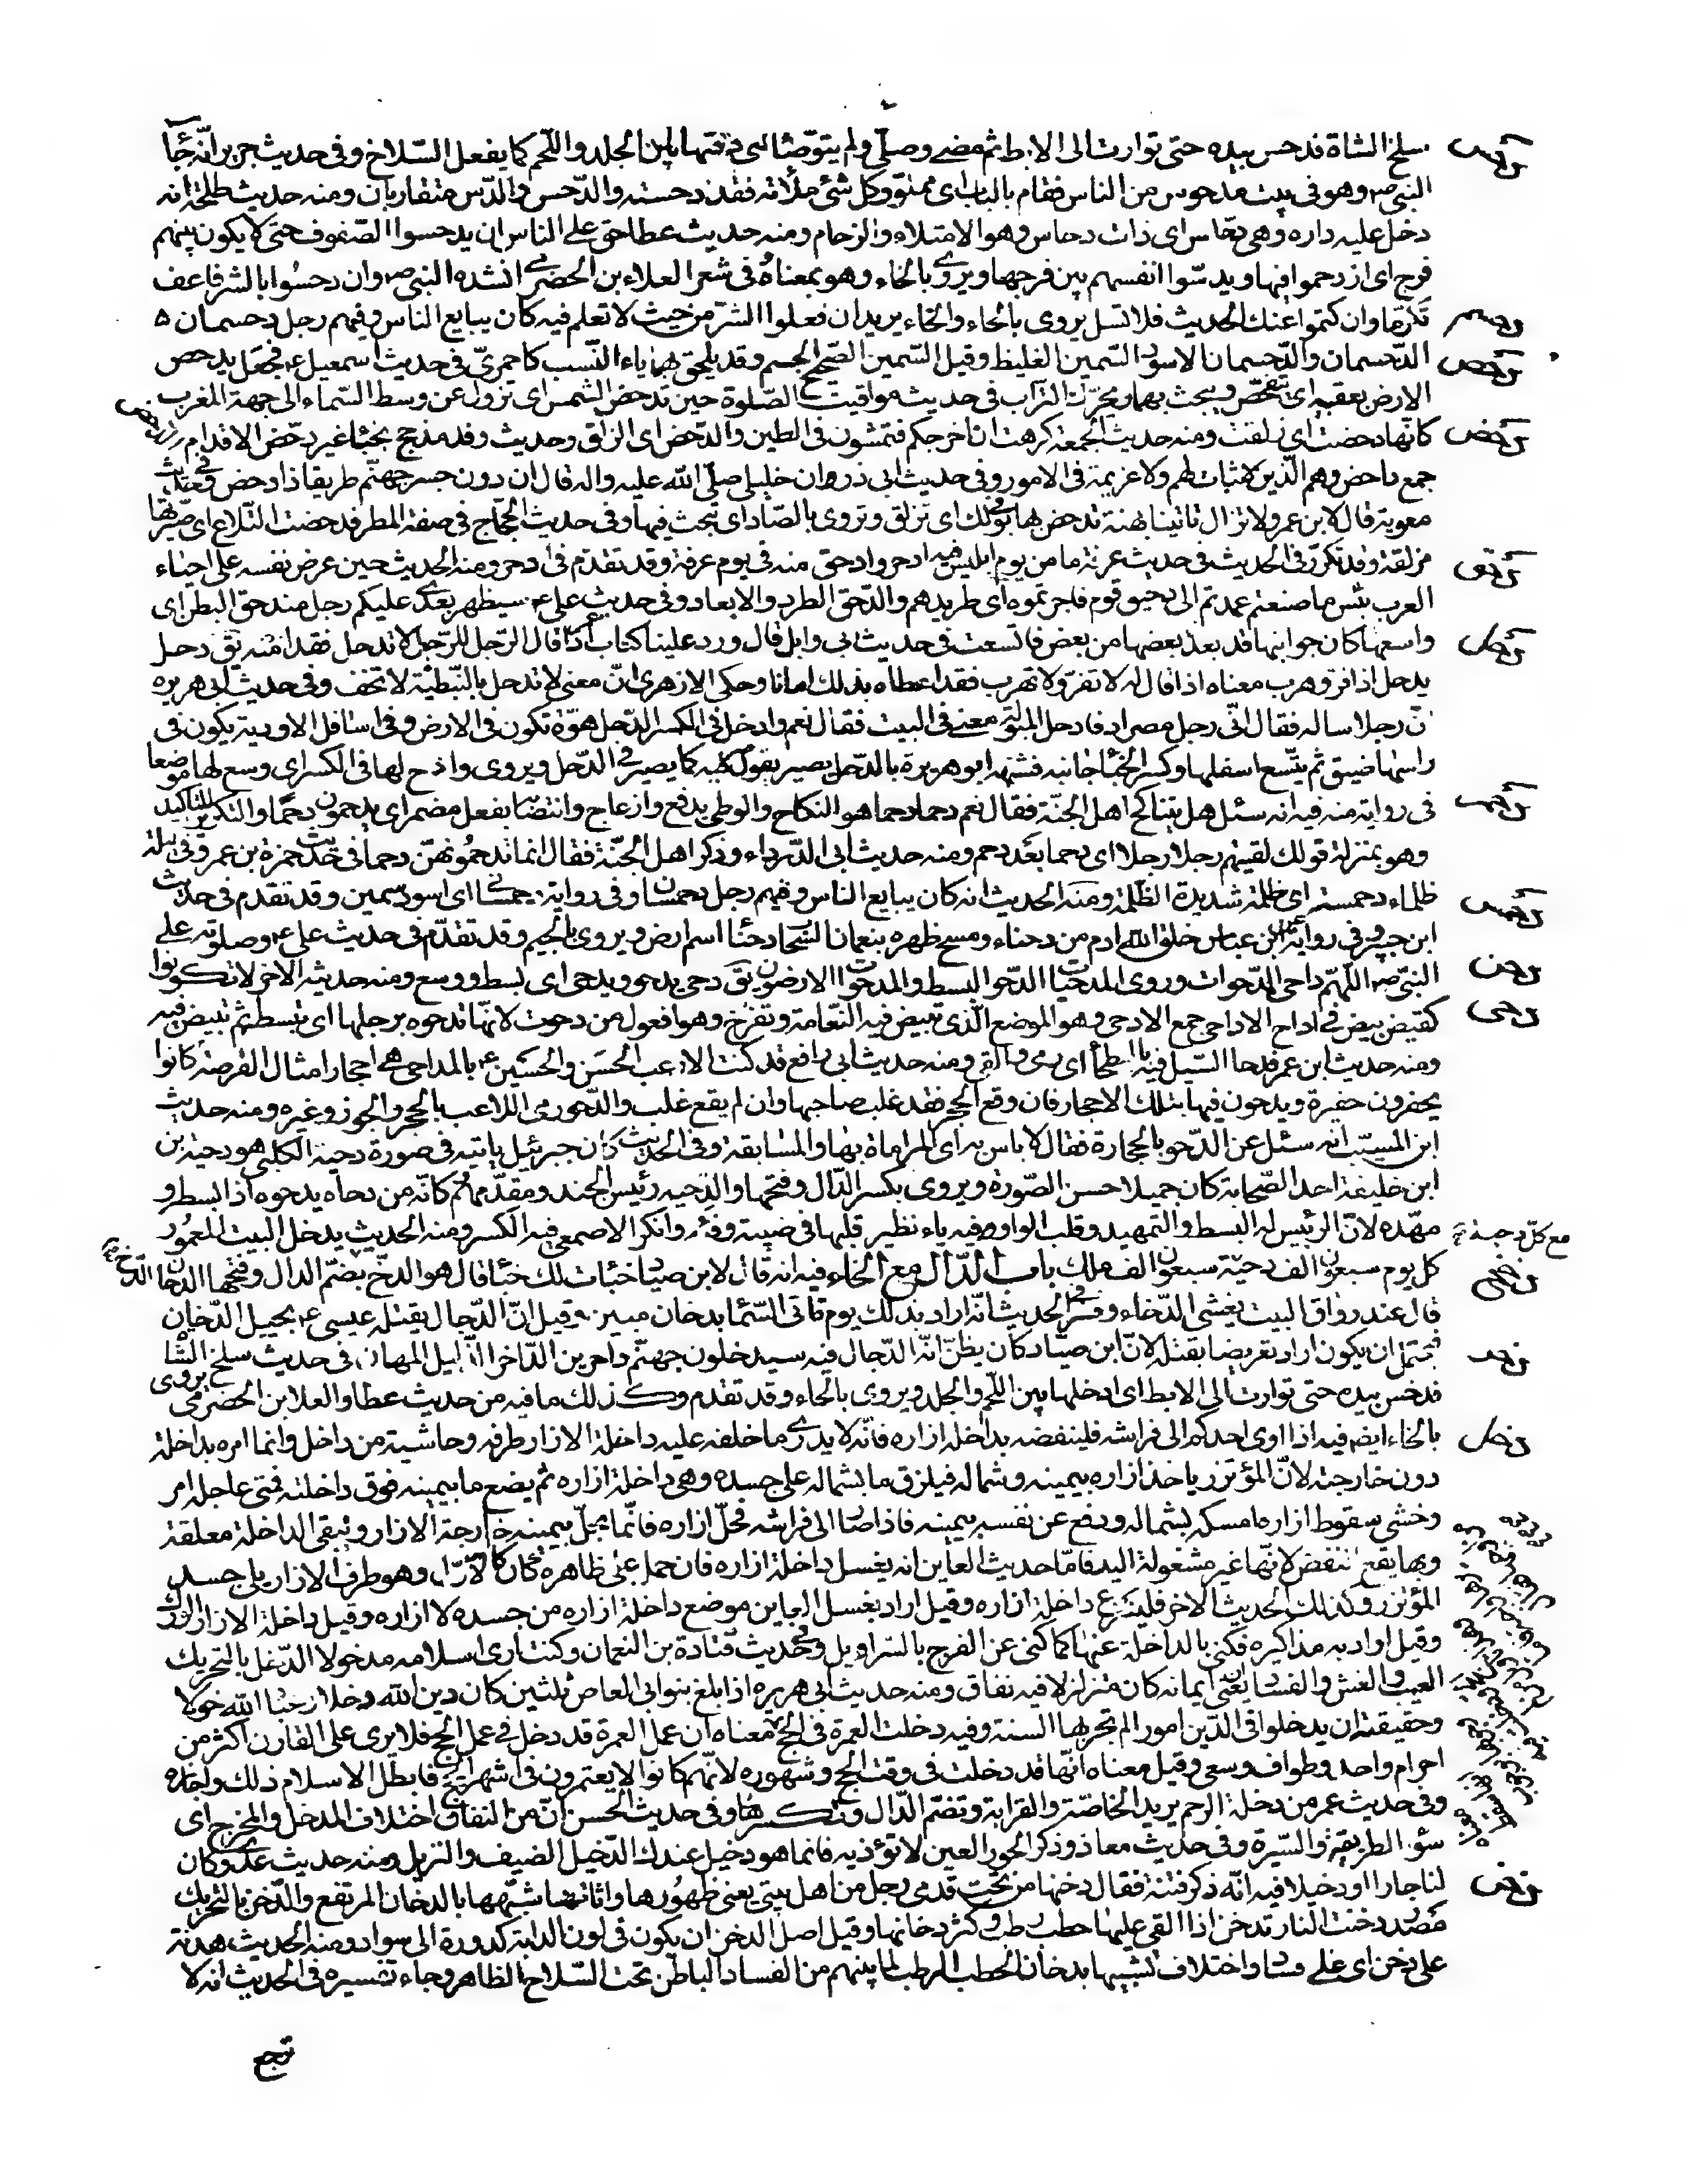 سلخ الشاة فدحس بيده حتى توارت الى الابط ثم مضى وصلّى ولم يتوضّأ اى دسّها بين الجلد واللّحم كما يفعل السّلاخ وفى حديث جرير انّه جاء
النبى ص وهو فى بيت مدحوس من الناس فقام بالباب اى مملوّ وكل شئ ملأته فقد دحسته والدّحس والدّس متقاربان ومنه حديث طلحة انه
دخل عليه داره وهى دحاس اى ذات دحاس وهو الامتلاء والزحام ومنه حديث عطا حق على الناس ان يدحسوا الصّفوف حتى لا يكون بينهم
فرج اى ازدحموا فيها ويدسّوا انفسهم بين فرجها ويروى بالخاء وهو بمعناه فى شعر العلاء بن الحضرمى انشده النبى ص وان دحسوا بالشر فاعف
تكرّما وان كتموا عنك الحديث فلا تسل يروى بالحاء والخاء يريد ان فعلوا الشرّ من حيث لا تعلم فيه كان يبايع الناس وفيهم رجل دحسمان
الدّحسمان والدّحمسان الاسود السّمين الغليظ وقيل السّمين الصّحيح الجسم وقد يلحق بهما ياء النّسب كاحمرىّ فى حديث اسمعيل ع فجعل يدحص
الارض بعقبيه اى يفحص ويبحث بهما ويحرّك التراب فى حديث مواقيت الصّلوة حين تدحض الشمس اى تزول عن وسط السّماء الى جهة المغرب
كانّها دحضت اى زلقت ومنه حديث الجمعة كرهت ان اخرجكم فتمشون فى الطين والدّحض اى الزلق وحديث وفد مذحج نجباء غير دحّض الاقدام
جمع داحض وهم الّذين لا ثبات لهم ولا عزيمة فى الامور وفى حديث ابى ذر ان خليلى صلّى الله عليه واله قال ان دون جسر جهنّم طريقا ذا دحض وفى حديث
معوية قال لابن عمر ولا تزال تاتينا بهنة تدحض بها فى بولك اى تزلق وتروى بالصّاد اى تبحث فيها وفى حديث الحجّاج فى صفة المطر فدحضت التّلاع اى صيّرتها
مزلقة وقد تكرّر فى الحديث فى حديث عرفة ما من يوم ابليس فيه ادحر وادحق منه فى يوم عرفة وقد تقدّم فى دحر ومنه الحديث حين عرض نفسه على احياء
العرب بئس ما صنعتم عمدتم الى دحيق قوم فاجرتموه اى طريدهم والدّحق الطرد والابعاد وفى حديث على ع سيظهر بعدى عليكم رجل مندحق البطن اى
واسعها كان جوانبها قد بعد بعضها من بعض فاتسعت فى حديث ابى وايل قال ورد علينا كتاب عمر اذا قال الرّجل للرّجل لا تدحل فقد امنه يق دحل
يدحل اذا فرّ وهرب معناه اذا قال له لا تفرّ ولا تهرب فقد اعطاه بذلك امانا وحكى الازهرى انّ معنى لا تدحل بالنّبطيّة لا تخف وفى حديث ابى هريره
انّ رجلا ساله فقال انّى رجل مصراد فادحل المبولة معى فى البيت فقال نعم وادحل فى الكسر الدّحل هوّة تكون فى الارض وفى اسافل الاودية يكون فى
راسها ضيق ثم يتّسع اسفلها وكسر الخباء جانبه فشبّه ابو هريرة بالدّحل يقول صر فيه كما يصير فى الدّحل ويروى وادح لها فى الكسر اى وسع لها موضعا
فى رواية منه فيه انه سئل هل يتناكح اهل الجنّة فقال نعم دحما دحما هو النكاح والوطى بدفع وازعاج وانتصابه بفعل مضمر اى يدحمون دحما والتكرير للتاكيد
وهو بمنزلة قولك لقيتهم رجلا رجلا اى دحما بعد دحم ومنه حديث ابى الدّرداء وذكر اهل الجنّة فقال انما تدحمونهنّ دحما فى حديث حمزة بن عمرو فى ليلة
ظلماء دحمسة اى ظلمة شديدة الظّلمة ومنه الحديث انه كان يبايع الناس وفيهم رجل دحمسان وفى رواية دحمسانى اى اسود سمين وقد تقدم فى حديث
ابن جبير فى رواية عن ابن عباس خلق الله ادم من دحناء ومسح ظهره بنعمان السّحاب دحناء اسم ارض ويروى بالجيم وقد تقدّم فى حديث على ع وصلوته على
النبىّ ص اللّهمّ داحى المدحوات وروى المدحيّات الدّحو البسط والمدحوّات الارضون يق دحى يدحو ويدحى اى بسط ووسع ومنه حديثه الاخر لا تكونوا
كقيض بيض فى اداح الاداحى جمع الادحى وهو الموضع الّذى تبيض فيه النّعامة وتفرّخ وهو افعول من دحوت لانّها تدحوه برجلها اى تبسطه ثم تبيض فيه
ومنه حديث ابن عمر فدحا السّيل فيه بالبطحاء اى رمى والقى ومنه حديث ابى رافع قد كنت الاعب الحسن والحسين ع بالمداحى هى احجار امثال القرصة كانوا
يحفرون حفيرة ويدحون فيها بتلك الاحجار فان وقع الحجر فقد غلب صاحبها وان لم يقع غلب والدّحو رمى اللاعب بالحجر والجوز وغيره ومنه حديث
ابن المسيّب انه سئل عن الدّحو بالحجارة فقال لا باس به اى المراماة بها والمسابقة وفى الحديث كان جبرئيل ياتيه فى صورة دحية الكلبى هو دحية بن
ابن خليفة احد الصّحابة كان جميلا حسن الصّورة ويروى بكسر الدّال وفتحها والدّحيه رئيس الجند ومقدّمهم كانّه من دحاه يدحوه اذا بسطه و
مهّده لانّ الرئيس له البسط والتمهيد وقلب الواو فيه ياء نظير قلبها فى ضبية وفتية وانكر الاصمعى فيه الكسر ومنه الحديث يدخل البيت المعمور
مع كلّ دحية
كل يوم سبعون الف دحيّة سبعون الف ملك باب الدّال مع الخاء فيه انه قال لابن صياد خبأت لك خبئا قال هو الدخّ بضمّ الدال وفتحها الدّخان
قال عند رواق البيت يغشى الدّخاء وفسّر فى الحديث انّه اراد بذلك يوم تاتى السّماء بدخان مبين وقيل انّ الدّجال يقتله عيسى ع بجبل الدّخان
فيحتمل ان يكون اراد تعريضا بقتله لانّ ابن صيّاد كان يظنّ انّه الدّجال فيه سيدخلون جهنّم داخرين الدّاخر الذّليل المهان فى حديث سلخ الشّاة
فدخس بيده حتى توارت الى الابط اى ادخلها بين اللّحم والجلد ويروى بالحاء وقد تقدم وكذلك ما فيه من حديث عطا والعلا ابن الحضرمى يروى
بالخاء ايض فيه اذا اوى احدكم الى فراشه فلينفضه بداخلة ازاره فانّه لا يدرى ما خلفه عليه داخلة الازار طرفه وحاشيته من داخل وانما امره بداخلة
دون خارجة لانّ المؤتزر ياخذ ازاره بيمينه وشماله فيلزق ما بشماله على جسده وهى داخلة ازاره ثم يضع ما بيمينه فوق داخلته فمتى عاجله امر
وخشى سقوط ازاره امسكه بشماله ودفع عن نفسه بيمينه فاذا صار الى فراشه فحلّ ازاره فانّما يحلّ بيمينه خارجة الازار وتبقى الداخلة معلقة
وبها يقع النفض لانّها غير مشغولة اليد فامّا حديث العاين انه يغسل داخلة ازاره فان حمل على ظاهره كان كالاوّل وهو طرف الازار يلى جسد
المؤتزر وكذلك الحديث الاخر فلينزع داخلة ازاره وقيل اراد يغسل العاين موضع داخلة ازاره من جسده لا ازاره وقيل داخلة الازار الورك
وقيل اراد به مذاكيره فكنى بالداخلة عنها كما كنى عن الفرج بالسراويل وفى حديث قتادة بن النعمان وكنت ارى اسلامه مدخولا الدّخل بالتحريك
العيب والغش والفساد يعنى ان ايمانه كان متزلزلا فيه نفاق ومنه حديث ابى هريره اذا بلغ بنو ابى العاص ثلثين كان دين الله دخلا وعباد الله خولا
وحقيقته ان يدخلوا فى الدّين امورا لم تجر بها السنة وفيه دخلت العمرة فى الحجّ معناه ان عمل العمرة قد دخل فى عمل الحج فلا يرى على القارن اكثر من
احرام واحد وطواف وسعى وقيل معناه انّها قد دخلت فى وقت الحج وشهوره لانّهم كانوا لا يعتمرون فى اشهر الحج فابطل الاسلام ذلك واجازه
وفى حديث عمر من دخلة الرحم يريد الخاصّة والقرابة وتضمّ الدّال وتكسر وفى حديث الحسن انّ من النفاق اختلاف المدخل والمخرج اى
سوء الطريقة والسّيرة وفى حديث معاذ وذكر الحور العين لا تؤذيه فانما هو دخيل عندك الدّخيل الضيف والنزيل ومنه حديث عدى وكان
لنا جارا او دخيلا فيه انّه ذكر فتنة فقال دخنها من تحت قدمى رجل من اهل بيتى يعنى ظهورها واثارتها شبّهها بالدخّان المرتفع والدّخن بالتحريك
مصدر دخنت النار تدخن اذا القى عليها حطب رطب وكثر دخانها وقيل اصل الدخن ان يكون فى لون الدابة كدورة الى سواد ومنه الحديث هدنة
على دخن اى على فساد واختلاف تشبيها بدخان الحطب الرطب لما بينهم من الفساد الباطن تحت السّلاح الظاهر وجاء تفسيره فى الحديث انه لا
ترجع